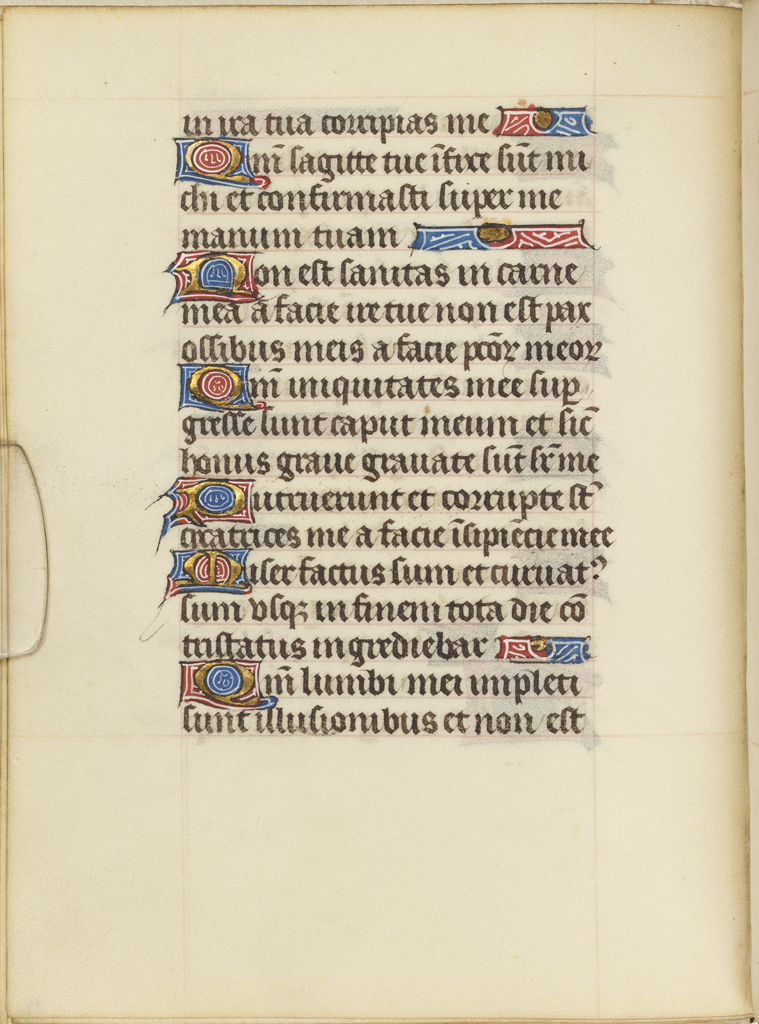 in ira tua corripias me
Qm̄ sagitte tue īfixe sūt mi
chi et confirmasti super me
manum tuam
Non est sanitas in carne
mea a facie ire tue non est pax
ossibus meis a facie pccōꝝ meoꝝ
Qm̄ iniquitates mee suꝑ
gresse sunt caput meum et sic̄
honus graue grauate sūt sr̄ me
Putruerunt et corrupte st̄
cicatrices me a facie īsipiēcie mee
Miser factus sum et curuatꝰ
sum vsqꝫ in finem tota die cō
tristatus ingrediebar
Qm̄ lumbi mei impleti
sunt illusionibus et non est